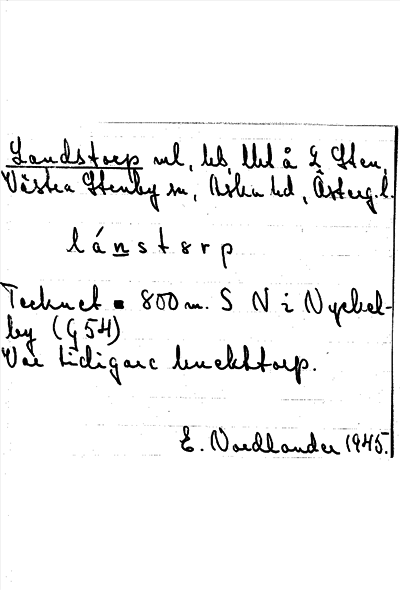 Landstorp ml, hb, lht å L Sten,
Västra Stenby sn, Aska hd, Östergl.
l á n s t ɘ r p
Tecknet ▪ 800 m. S N i Nyckel-
by (G 54)
Var tidigare knekttorp.
E. Nordlander 1945.